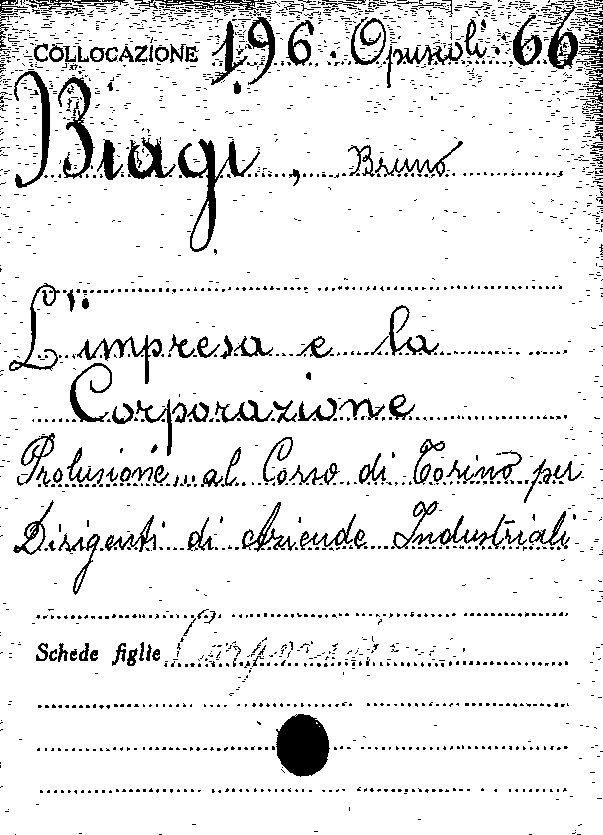 COLLOCAZIONE 196. Opuscoli. 66
Biagi, Bruno
L'impresa e la
Corporazione
Prolusione... al Corso di Torino per
Dirigenti di Aziende Industriali
Schede figlie Corporazione